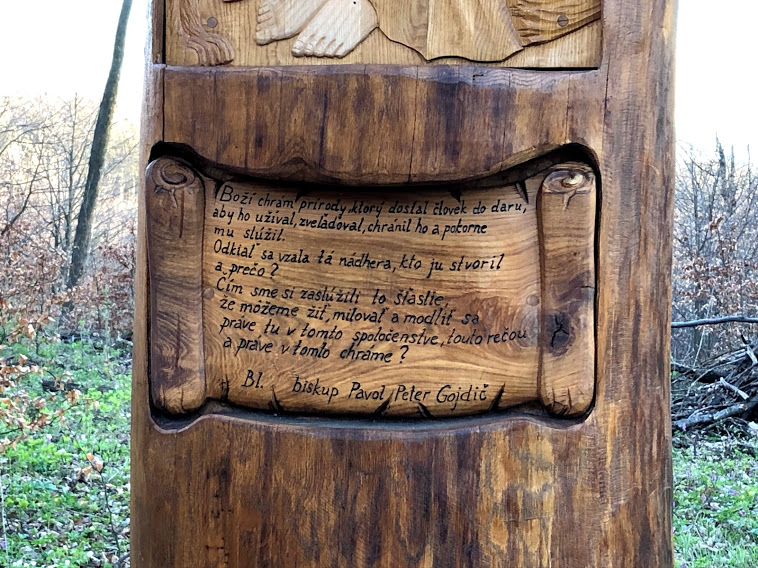 Boží chrám prírody, ktorý dostal človek do daru,
aby ho užíval, zveľaďoval, chránil ho a pokorne
mu slúžil.
Odkiaľ sa vzala tá nádhera, kto ju stvoril
a, prečo?
Čím sme si zaslúžili to šťastie,
že možeme žiť, milovať a modliť sa
práve tu v tomto spoločenstve, touto rečou
a práve v tomto chráme?
Bl. biskup Pavol Peter Gojdič